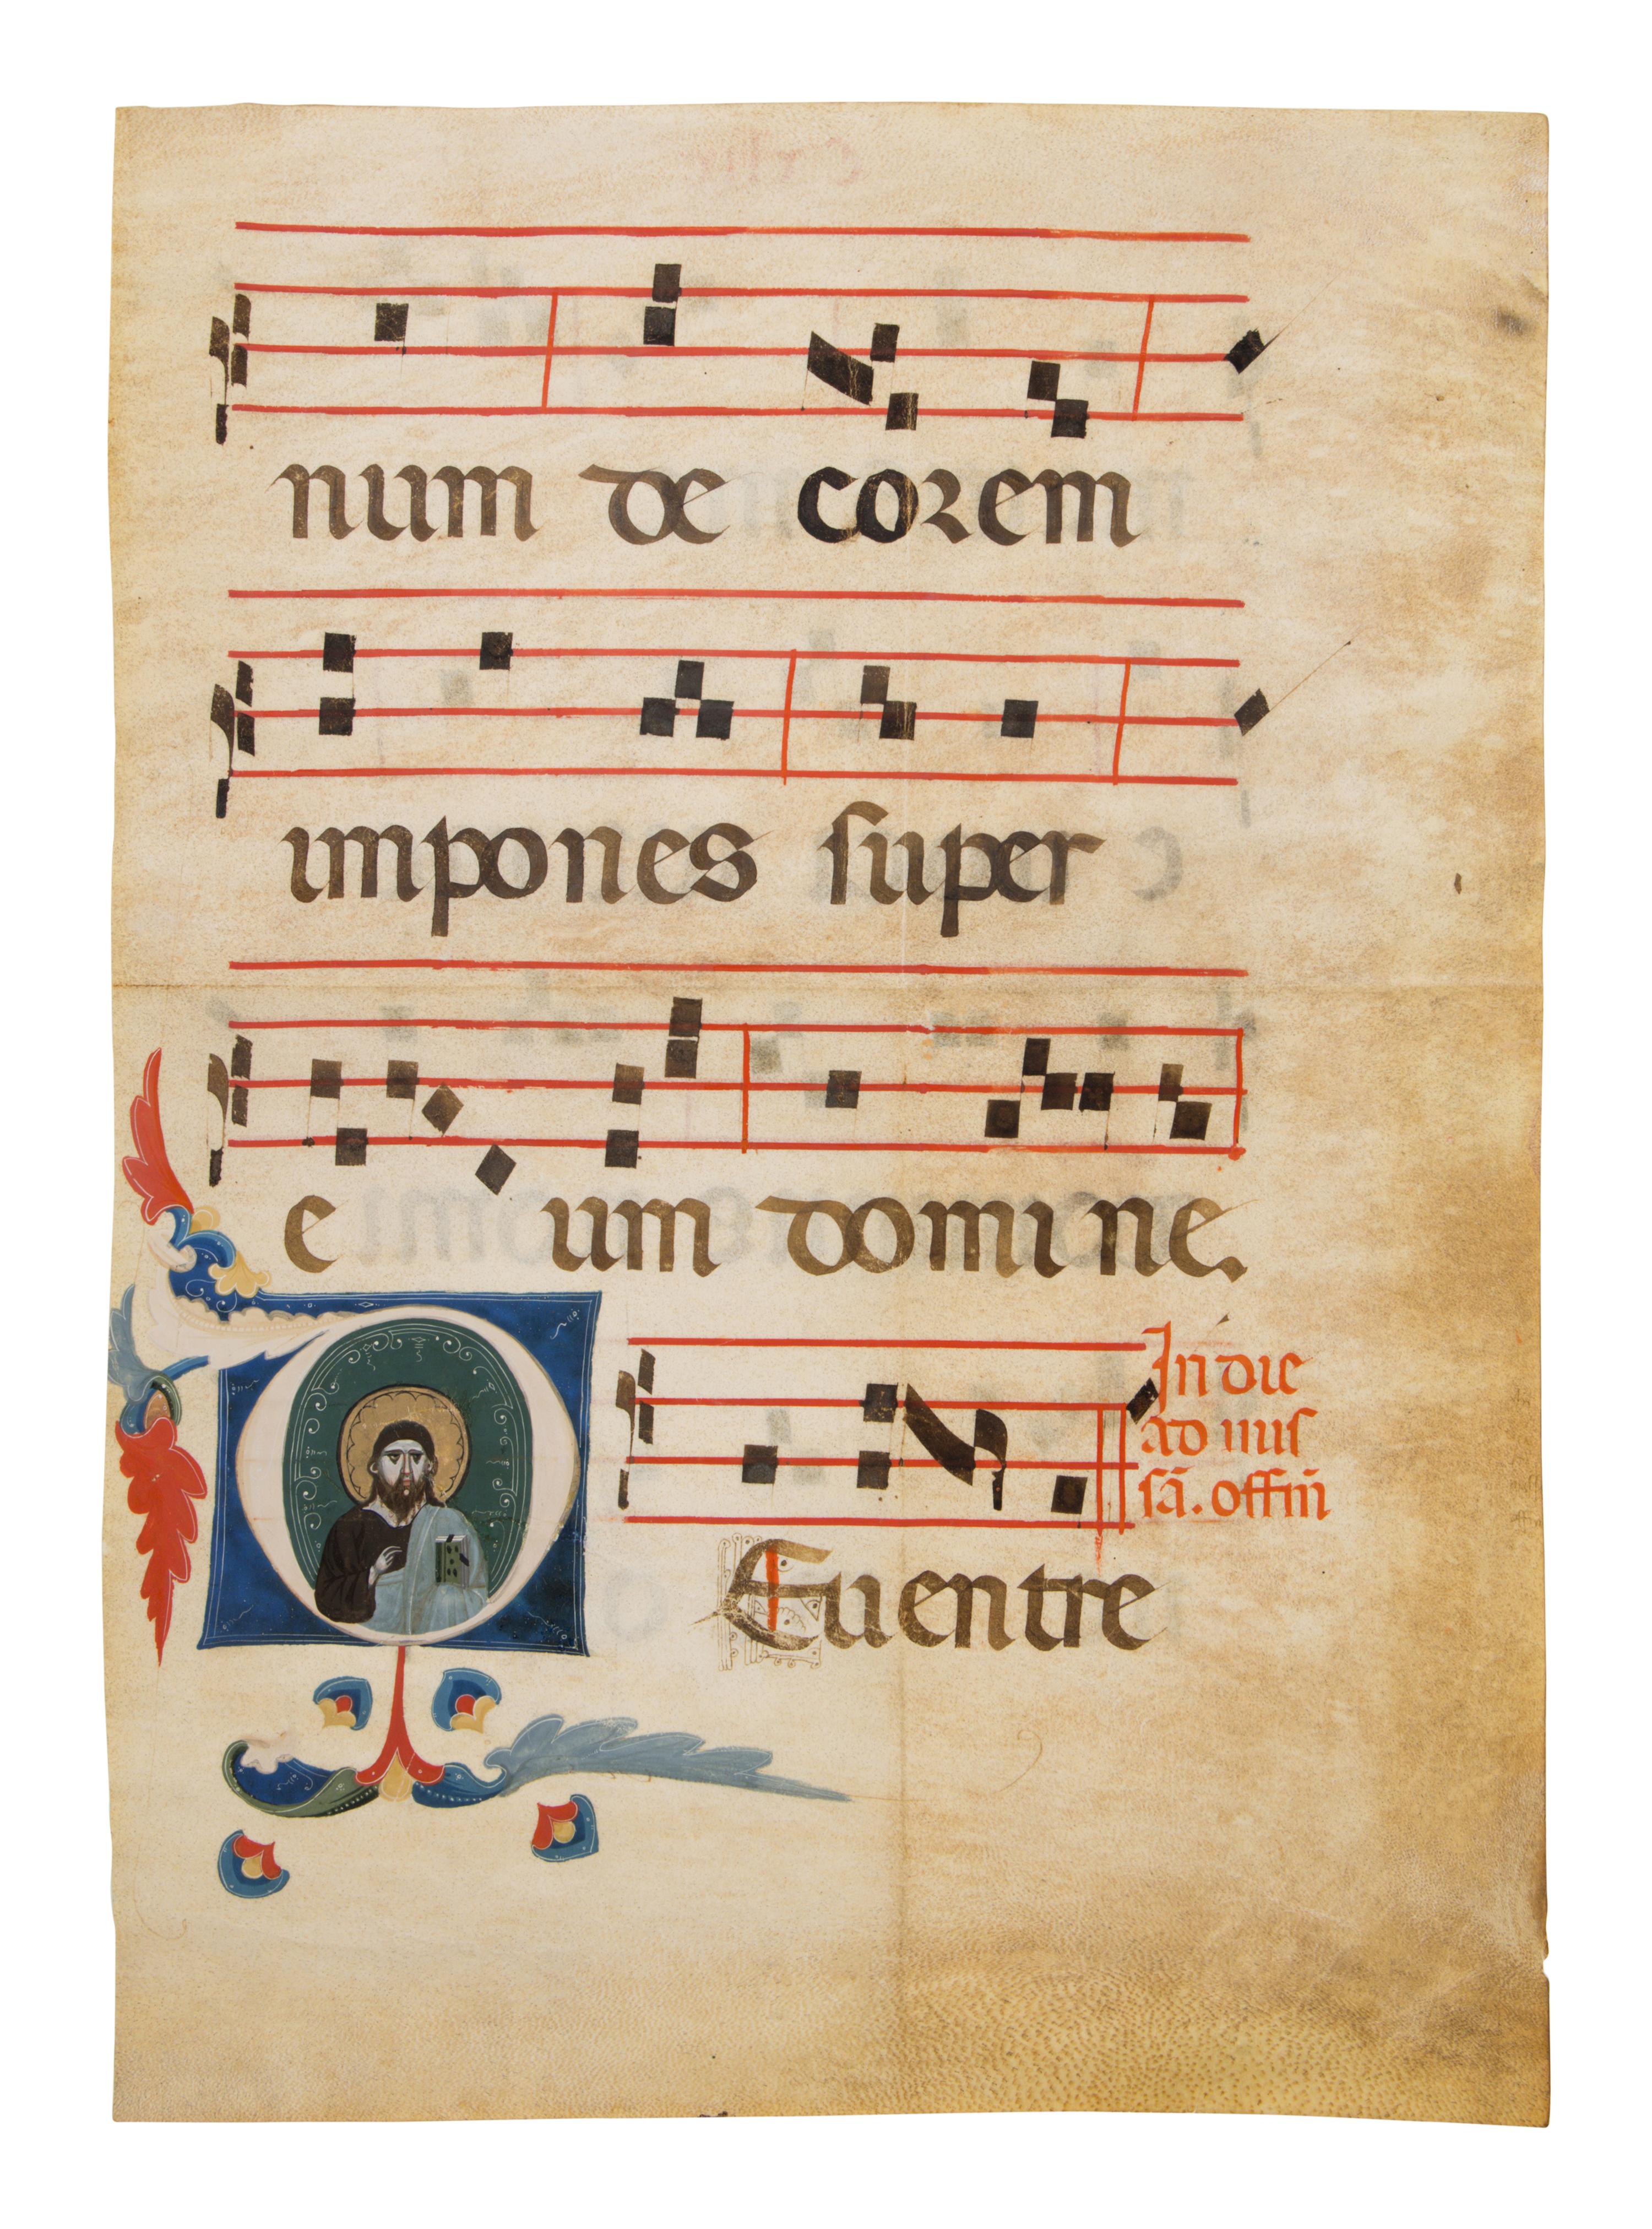 num de corem
impones super
e um domine.
In die
ad mis
sā. offm̄
De uentre